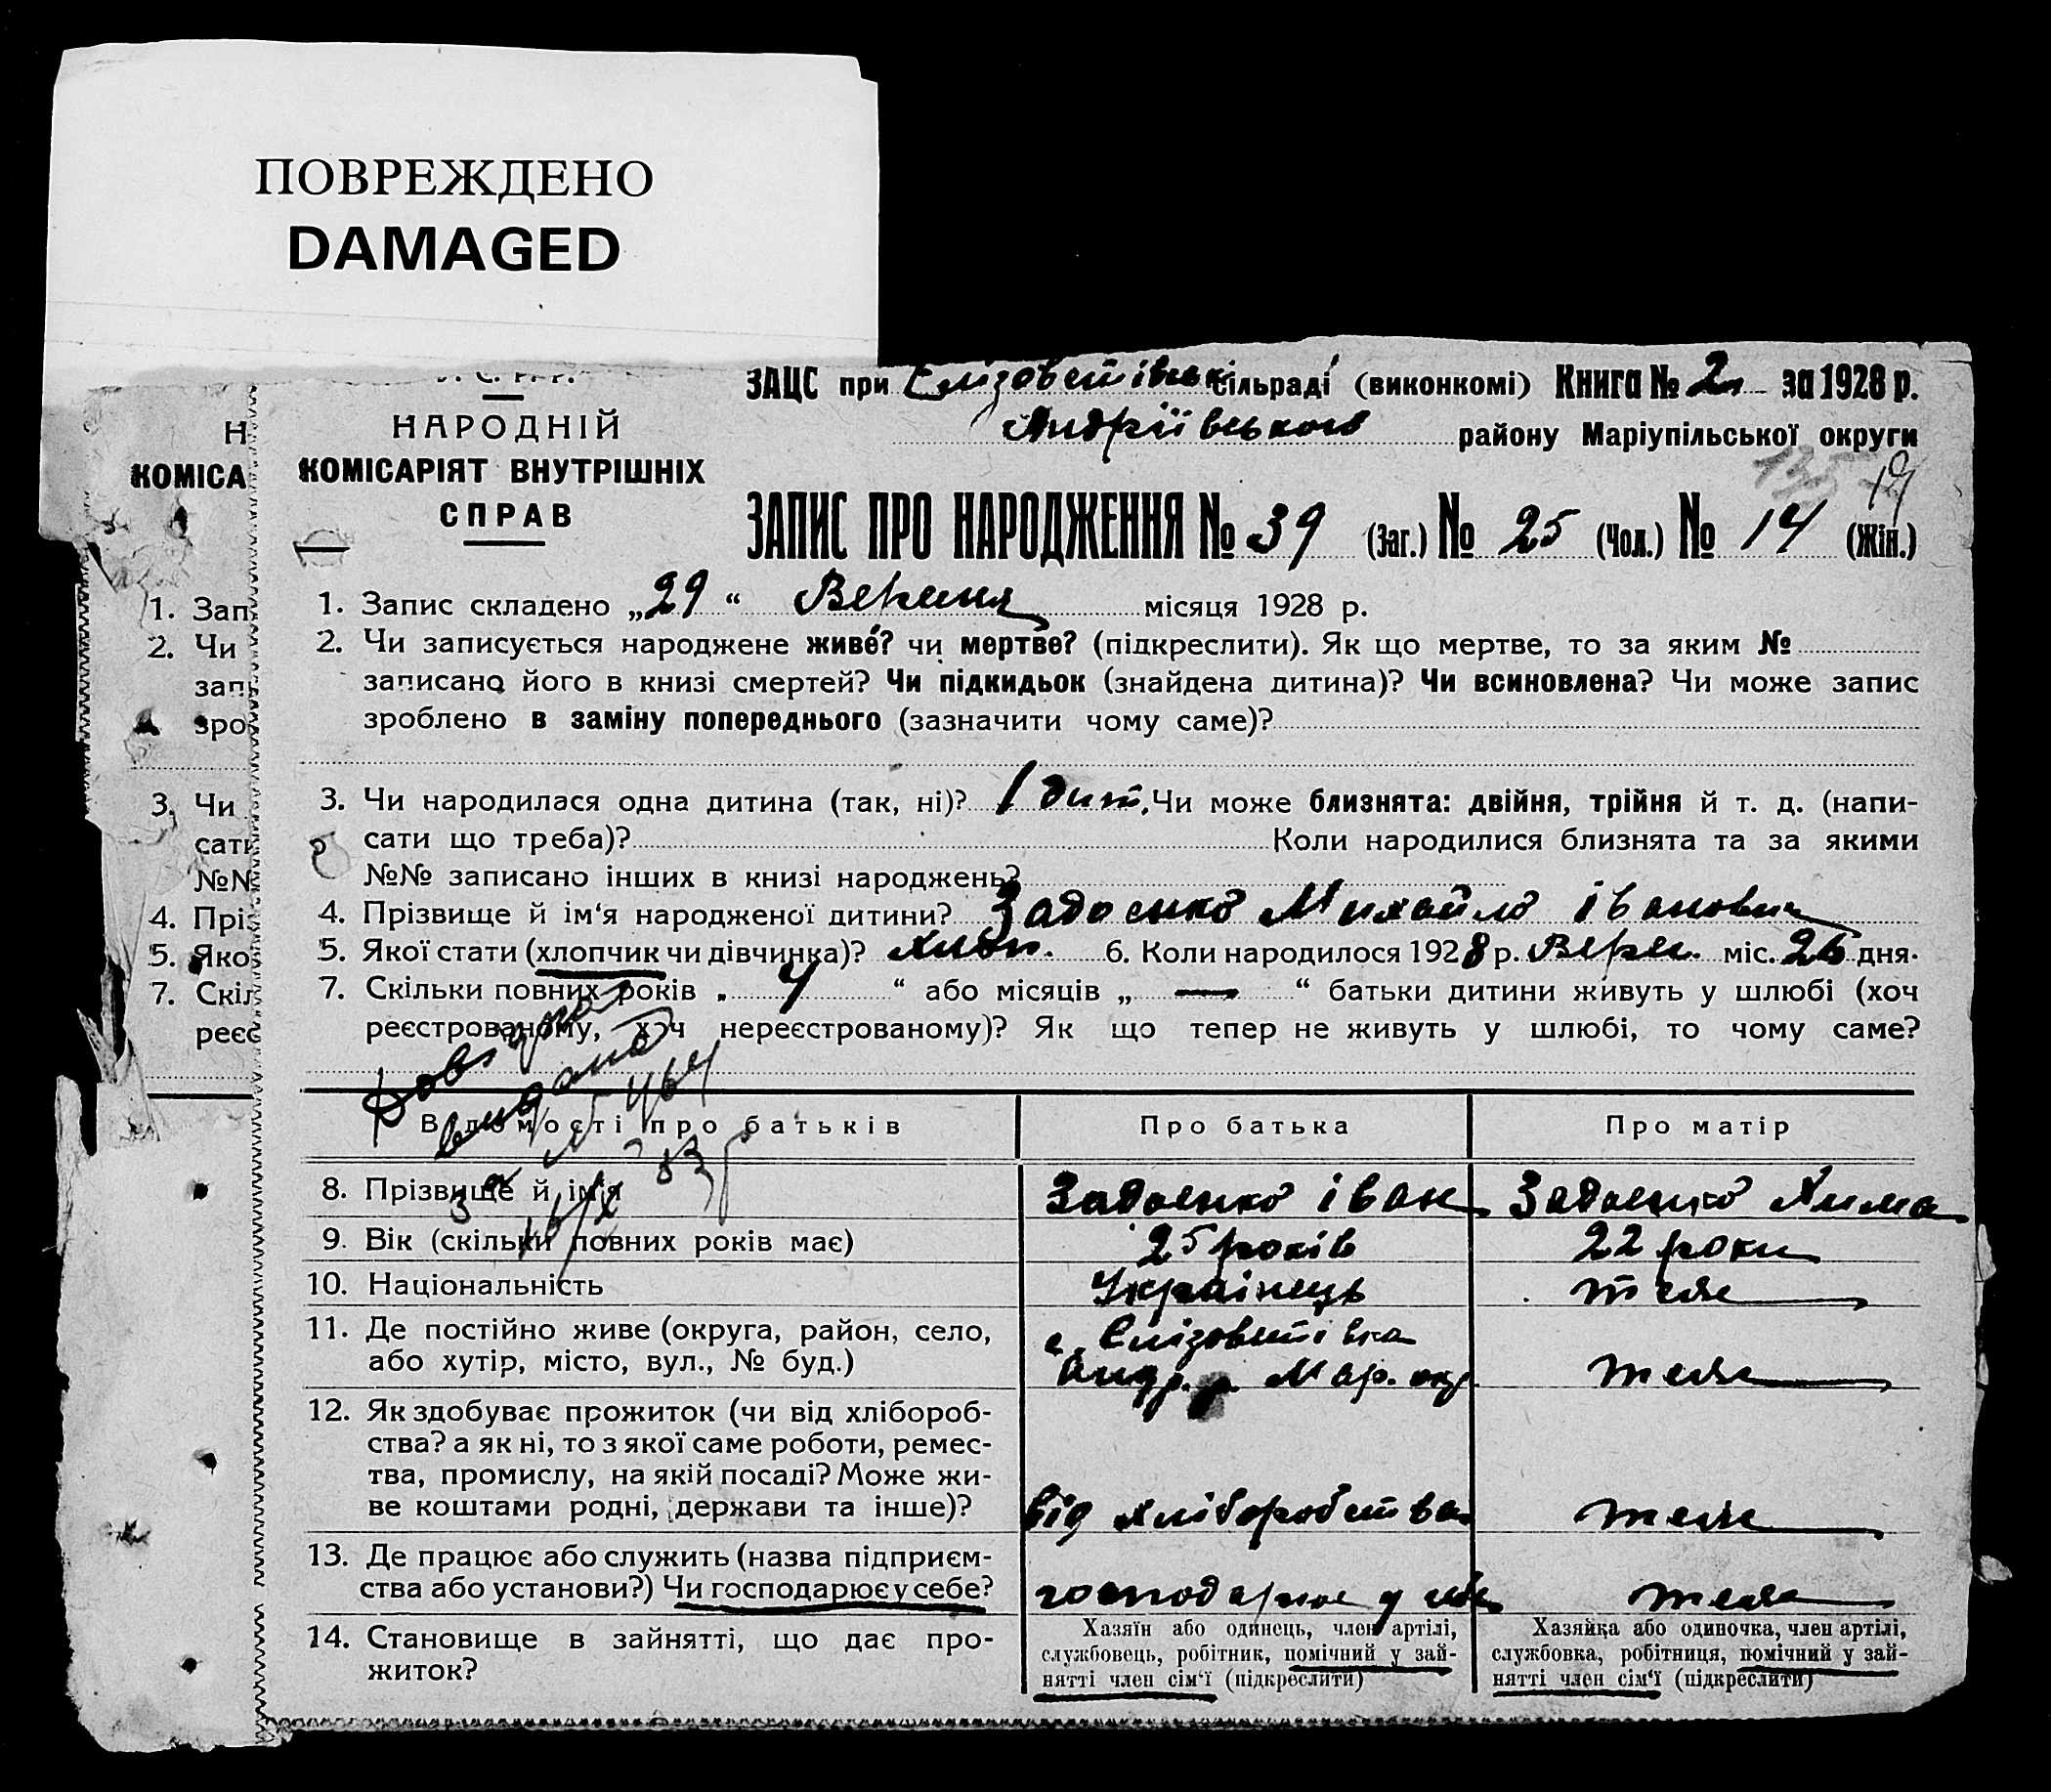 ПОВРЕЖДЕНО
DAMAGED
ЗАЦС при Єлізоветівськ сільраді (виконкомі) Книга № 2 за 1928 р.
Андріївського району Маріупільської округи
НАРОДНІЙ
КОМІСАРІЯТ ВНУТРІШНІХ
СПРАВ
Н
КОМІСА
ЗАПИС ПРО НАРОДЖЕННЯ № 39 (Заг.) № 25 (Чол.) № 14 (Жін.)
1. Зап
2. Чи
зап
зро
3. Чи
сати
№№
4. Пріз
5. Якої
7. Скіл
реєс
1. Запис складено „29“ Вересня місяця 1928 р.
2. Чи записується народжене живе? чи мертве? (підкреслити). Як що мертве, то за яким №
записано його в книзі смертей? Чи підкидьок (знайдена дитина)? Чи всиновлена? Чи може запис
зроблено в заміну попереднього (зазначити чому саме)?
3. Чи народилася одна дитина (так, ні)? 1 дит. Чи може близнята: двійня, трійня й т. д. (напи-
сати що треба)? Коли народилися близнята та за якими
№№ записано інших в книзі народжень?
4. Прізвище й ім‘я народженої дитини? Задоенко Михайло Іванович
5. Якої стати (хлопчик чи дівчинка)? хлоп. 6. Коли народилося 1928 р. Верес. міс. 26 дня.
7. Скільки повних років „ 4 “ або місяців „ — “ батьки дитини живуть у шлюбі (хоч
реєстрованому, хоч нереєстрованому)? Як що тепер не живуть у шлюбі, то чому саме?
видано
Відомості про батьків Про батька Про матір
8. Прізвище й ім‘я Задоенко Іван Задоенко Хима
9. Вік (скільки повних років має) 25 років 22 роки
10. Національність Українець теж
11. Де постійно живе (округа, район, село,
або хутір, місто, вул., № буд.)
с. Єлізоветівка
Андр. р. Мар. окр. теж
12. Як здобуває прожиток (чи від хлібороб-
ства? а як ні, то з якої саме роботи, ремес-
тва, промислу, на якій посаді? Може жи-
ве коштами родні, держави та інше)?
від хліборобства теж
13. Де працює або служить (назва підприєм-
ства або установи?) Чи господарює у себе?
господарює у себе теж
14. Становище в зайнятті, що дає про-
житок?
Хазяїн або одинець, член артілі,
службовець, робітник, помічний у зай-
нятті член сім‘ї (підкреслити)
Хазяйка або одиночка, член артілі,
службовка, робітниця, помічний у зай-
нятті член сім‘ї (підкреслити)